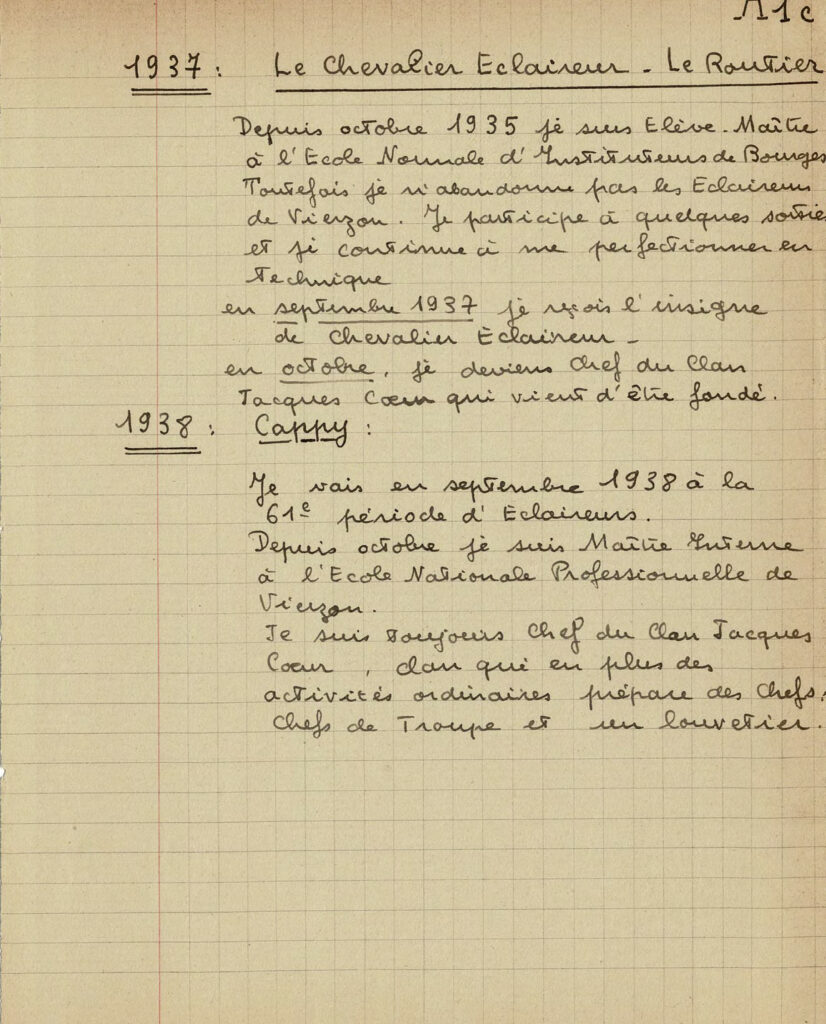 A1c
1937 : Le Chevalier Eclaireur - Le Routier
Depuis octobre 1935 je suis Elève-Maître
à l'Ecole Normale d'Instituteurs de Bourges
Toutefois je n'abandonne pas les Eclaireurs
de Vierzon. Je participe à quelques sorties
et je continue à me perfectionner en
technique
en septembre 1937 je reçois l'insigne
de Chevalier Eclaireur -
en octobre, je deviens Chef du Clan
Jacques Cœur qui vient d'être fondé.
1938 : Cappy :
Je vais en septembre 1938 à la
61e période d'Eclaireurs.
Depuis octobre je suis Maître Interne
à l'Ecole Nationale Professionnelle de
Vierzon.
Je suis toujours Chef du Clan Jacques
Cœur, clan qui en plus des
activités ordinaires prépare des Chefs.
Chefs de Troupe et un louvetier.